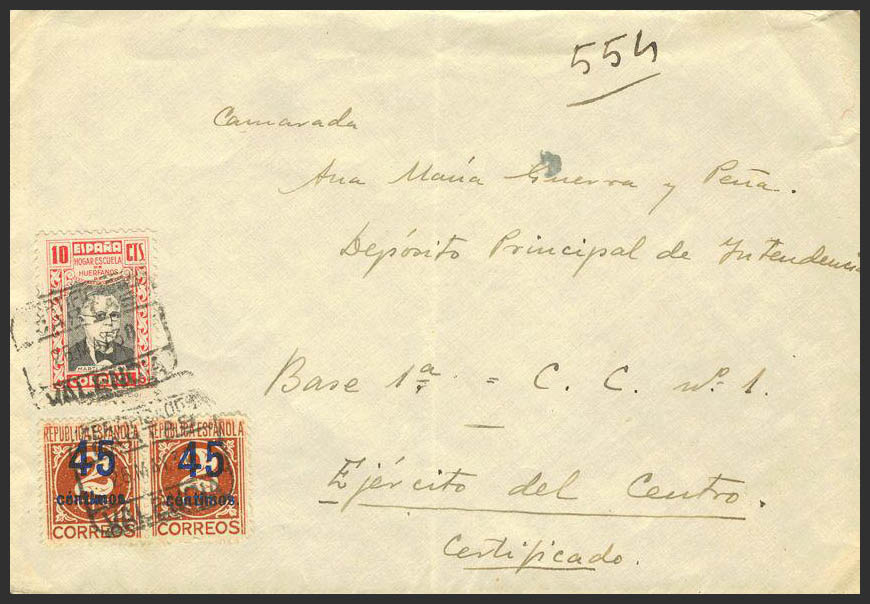 554
Camarada
Ana María Guerra y Peña.
Depósito Principal de Intendencia
10 ESPAÑA CTS
HOGAR ESCUELA
DE
HUERFANOS
CORREOS
VALENCIA
Base 1ª = C. C. nº 1.
REPUBLICA ESPAÑOLA REPUBLICA ESPAÑOLA
45 45
céntimos céntimos
CORREOS CORREOS
Ejército del Centro.
Certificado.